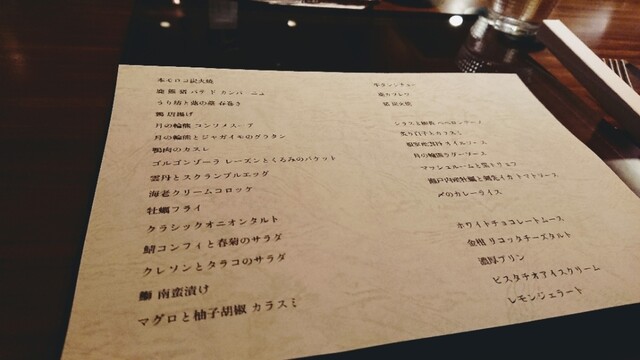 本モロコ炭火焼
鹿 熊 猪 パテ ド カンパーニュ
うり坊と蕗の薹 春巻き
鴨 唐揚げ
月の輪熊 コンソメスープ
月の輪熊とジャガイモのグラタン
鴨肉のカスレ
ゴルゴンゾーラ レーズンとくるみのバケット
雲丹とスクランブルエッグ
海老クリームコロッケ
牡蠣フライ
クラシックオニオンタルト
鯖コンフィと春菊のサラダ
クレソンとタラコのサラダ
鰤 南蛮漬け
マグロと柚子胡椒 カラスミ
牛タンシチュー
鹿カツレツ
猪 炭火焼
月の輪熊ラグーソース
マッシュルームと黒トリュフ
瀬戸内産牡蠣と剣先イカ トマトソース
〆のカレーライス
ホワイトチョコレートムース
金柑 リコッタチーズタルト
濃厚プリン
ピスタチオアイスクリーム
レモンジェラート